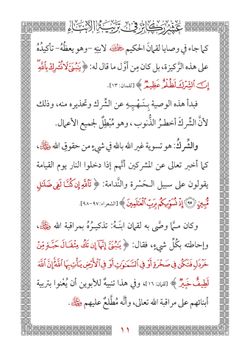 عشر ركائز في تربية الأبناء
كما جاء في وصايا لقمانَ الحكيمِ لابنهِ -وهو يعظُه- تأكيدُهُ
على هذه الرَّكيزة، بل كان مِن أوَّل ما قال له: ﴿يَٰبُنَيَّ لَا تُشْرِكْ بِٱللَّهِۖ
إِنَّ ٱلشِّرْكَ لَظُلْمٌ عَظِيمٌ﴾ [لقمان: ١٣].
فبدأ هذه الوصية بـنَـهْـيِـهِ عن الشِّرك وتحذيره منه، وذلك
لأنَّ الشِّركَ أخطرُ الذُّنوب، وهو مُبْطِلٌ لجميع الأعمال.
والشِّركُ: هو تسوية غير الله بالله في شيءٍ من حقوقِ الله،
كما أخبر تعالى عن المشركين أنَّهم إذا دخلوا النار يوم القيامة
يقولون على سبيل الـحَسْرة والنَّدامة: ﴿تَٱللَّهِ إِن كُنَّا لَفِى ضَلَٰلٍ
مُّبِينٍ ۝٩٧ إِذْ نُسَوِّيكُم بِرَبِّ ٱلْعَٰلَمِينَ﴾ [الشعراء: ٩٧-٩٨].
وكان ممَّا وصَّى به لقمانُ ابنَهُ: تذكيرُهُ بمراقبة الله،
وإحاطته بكُلِّ شيءٍ، فقال: ﴿يَٰبُنَيَّ إِنَّهَآ إِن تَكُ مِثْقَالَ حَبَّةٍ مِّنْ
خَرْدَلٍ فَتَكُن فِى صَخْرَةٍ أَوْ فِى ٱلسَّمَٰوَٰتِ أَوْ فِى ٱلْأَرْضِ يَأْتِ بِهَا ٱللَّهُۚ إِنَّ ٱللَّهَ
لَطِيفٌ خَبِيرٌ﴾ [لقمان: ١٦]، وفي هذا تنبيهٌ للأبوين أن يُعْنوا بتربية
أبنائهم على مراقبة الله تعالى، وأنَّه مُطَّلِعٌ عليهم
١١